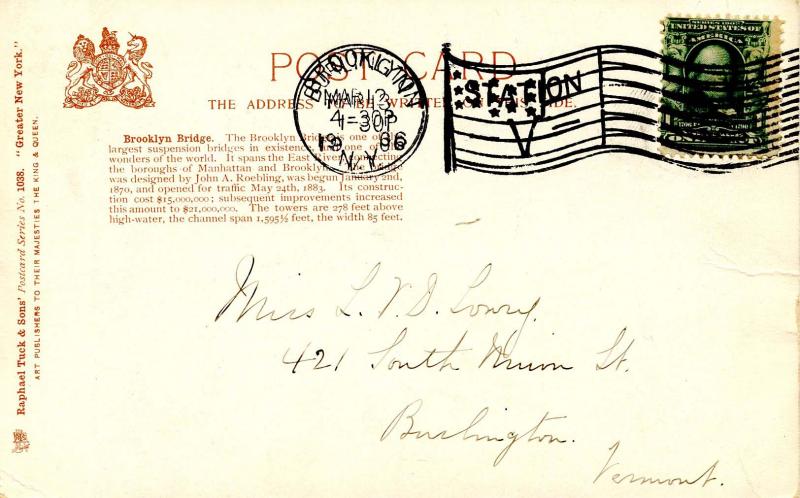 POST CARD
THE ADDRESS TO BE WRITTEN ON THIS SIDE.
BROOKLYN
MAR 13
1-30P
19 06
N.Y.
STATION
V
SERIES 1902
UNITED STATES OF
AMERICA
Brooklyn Bridge. The Brooklyn Bridge is one of the
largest suspension bridges in existence, and one of the
wonders of the world. It spans the East River, connecting
the boroughs of Manhattan and Brooklyn. The bridge
was designed by John A. Roebling, was begun January 2nd,
1870, and opened for traffic May 24th, 1883. Its construc-
tion cost $15,000,000; subsequent improvements increased
this amount to $21,000,000. The towers are 278 feet above
high-water, the channel span 1,595½ feet, the width 85 feet.
Miss L. V. D. Lowry.
421 South Union St.
Burlington.
Vermont.
Raphael Tuck & Sons' Postcard Series No. 1038. "Greater New York."
ART PUBLISHERS TO THEIR MAJESTIES THE KING & QUEEN.